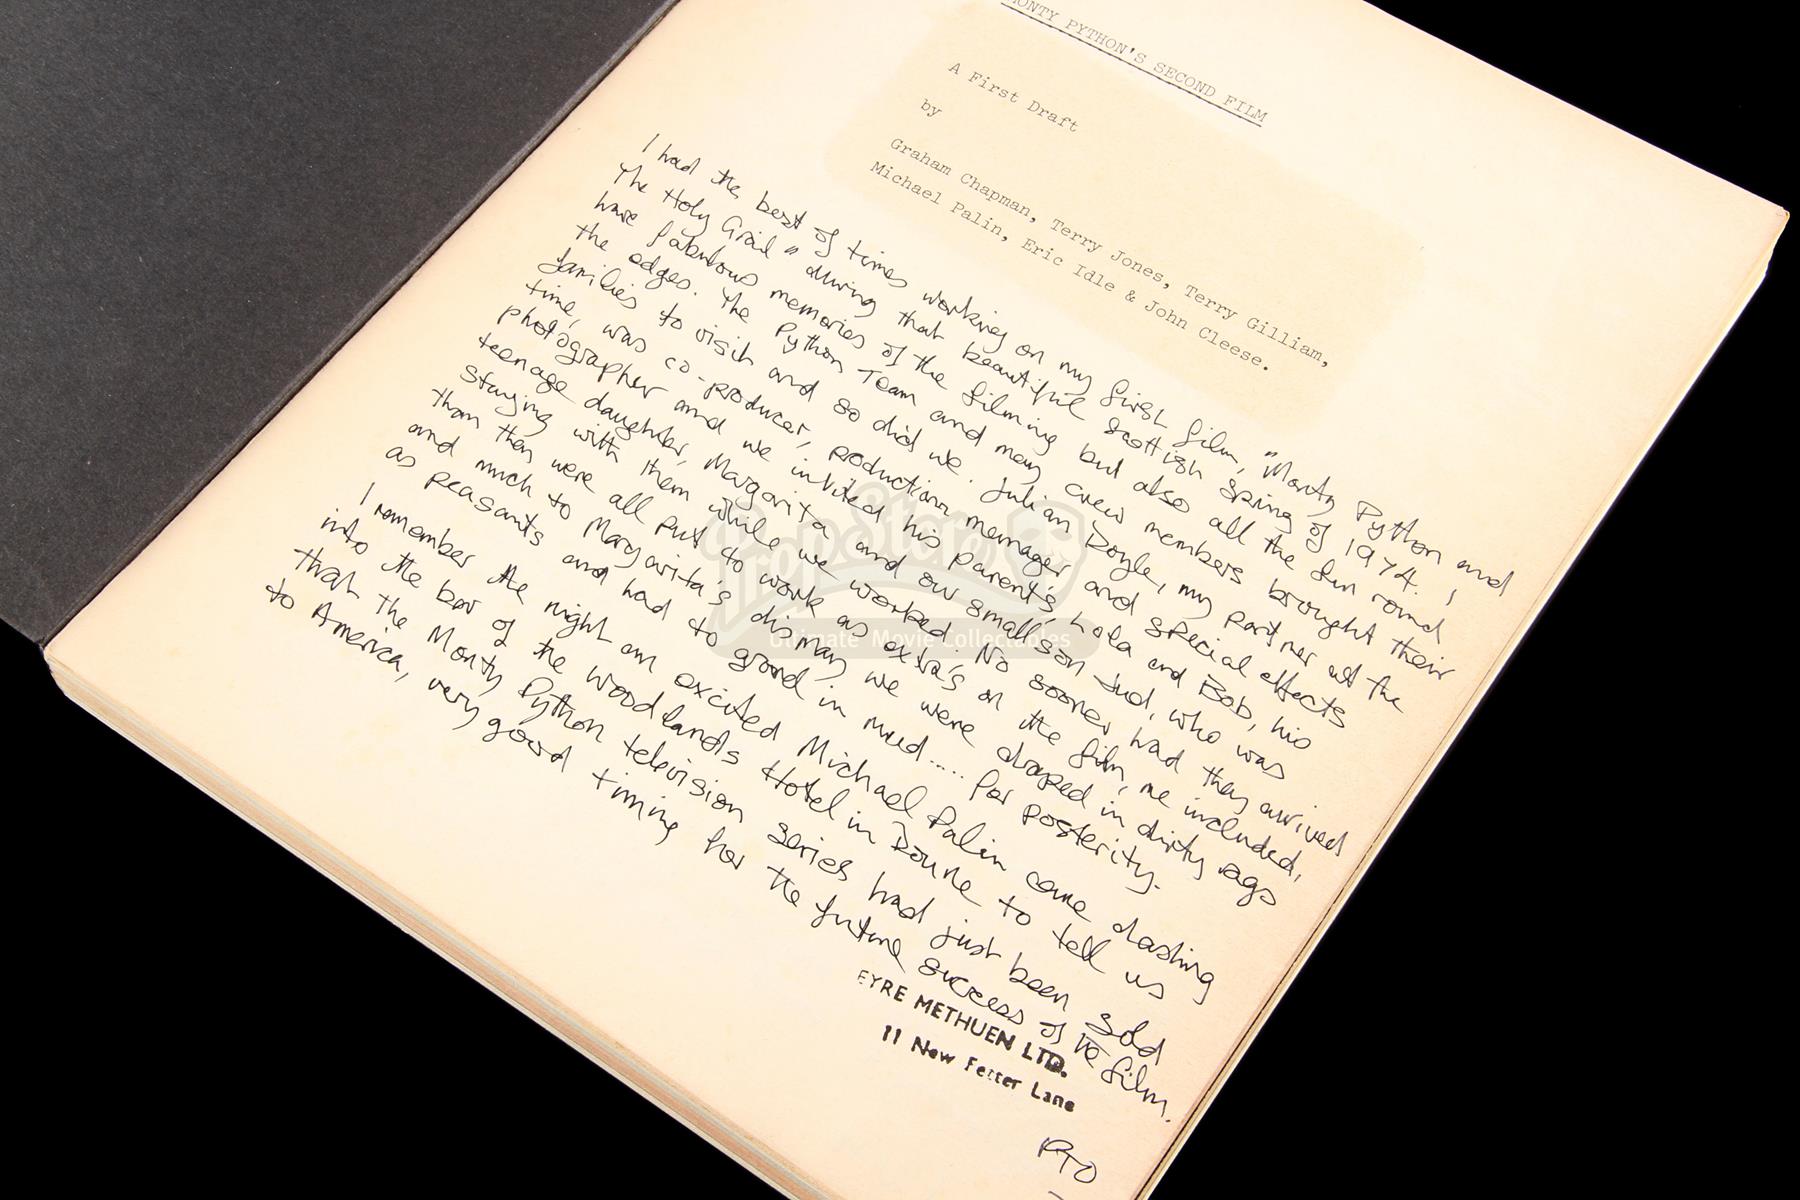 MONTY PYTHON'S SECOND FILM
A First Draft
by
Graham Chapman, Terry Jones, Terry Gilliam,
Michael Palin, Eric Idle & John Cleese.
I had the best of times working on my first film, "Monty Python and
The Holy Grail" during that beautiful Scottish Spring of 1974. I
have fabulous memories of the filming but also all the fun round
the edges. The Python Team and many crew members brought their
families to visit and so did we. Julian Doyle, my partner at the
time, was co-producer, production manager and special effects
photographer and we invited his parent's, Lola and Bob, his
teenage daughter, Margarita and our small son Jud, who was
staying with them while we worked. No sooner had they arrived
than they were all put to work as extra's on the film, me included,
and much to Margarita's dismay we were draped in dirty rags
as peasants and had to grovel in mud..... for posterity.
I remember the night an excited Michael Palin came dashing
into the bar of the Woodlands Hotel in Doune to tell us
that the Monty Python television series had just been sold
to America, very good timing for the future success of the film.
EYRE METHUEN LTD.
11 New Fetter Lane
PTO
Prop Store
Ultimate Movie Collectables